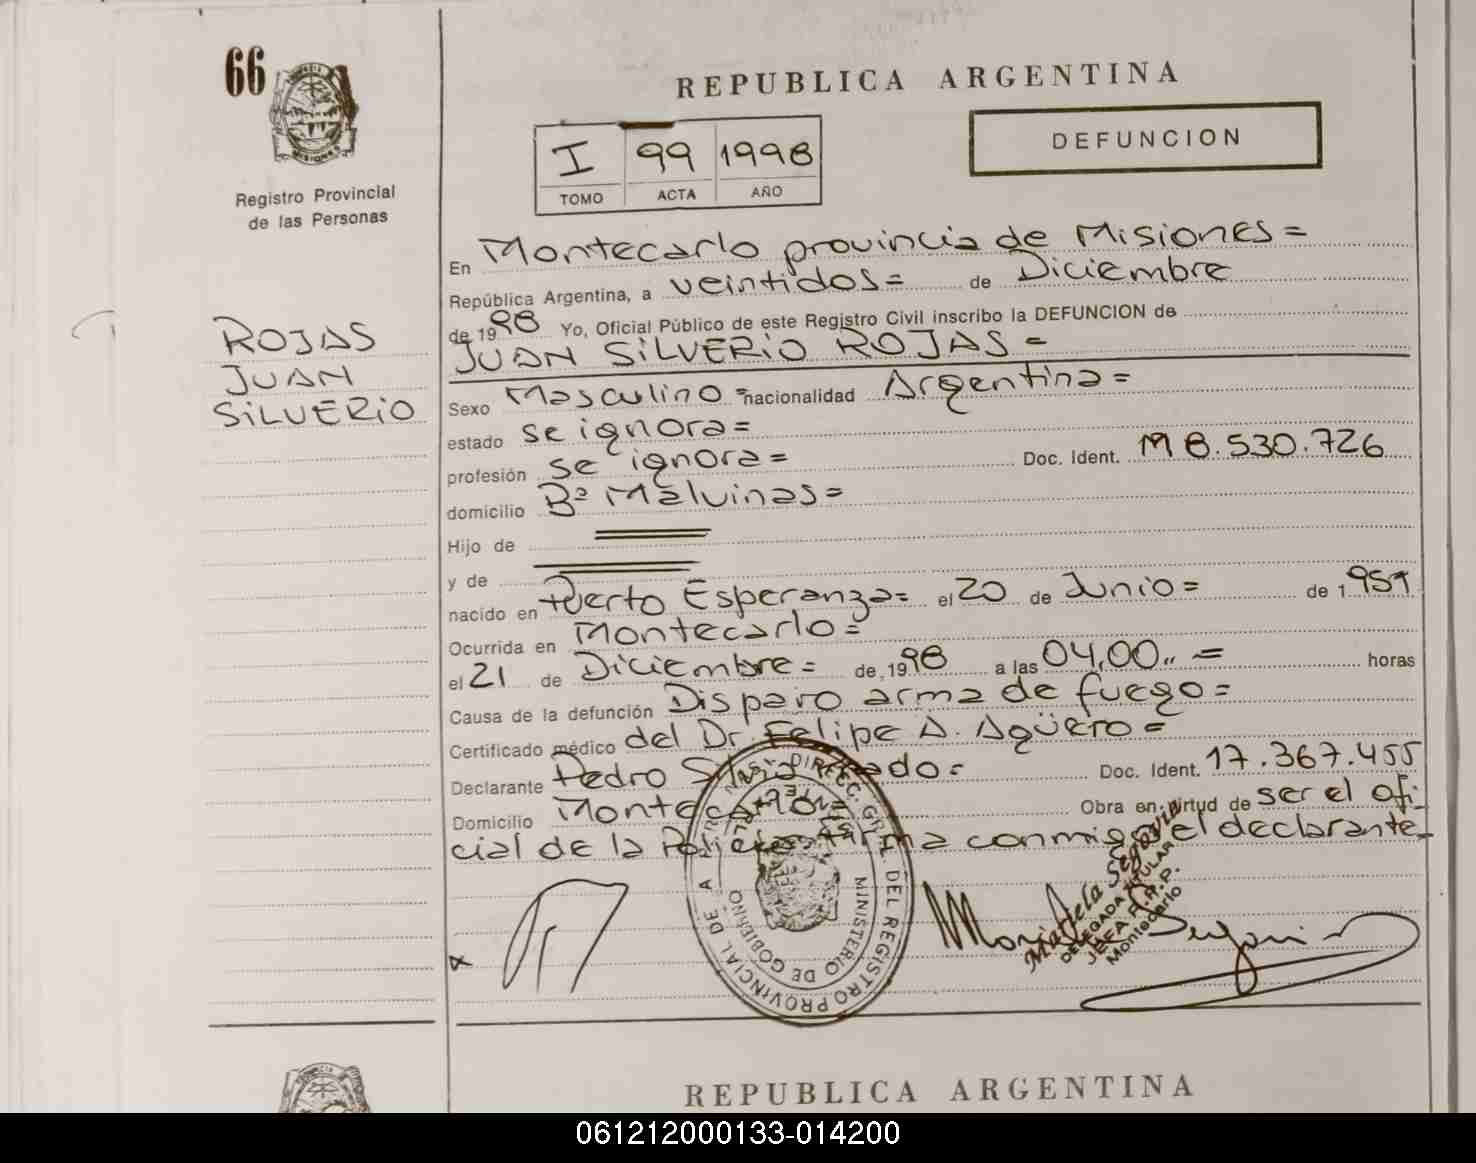 66
MISIONES
Registro Provincial
de las Personas
ROJAS
JUAN
SILVERIO
REPUBLICA ARGENTINA
I 99 1998
TOMO ACTA AÑO
DEFUNCION
En Montecarlo provincia de Misiones =
República Argentina, a veintidos = de Diciembre
de 1998 Yo, Oficial Público de este Registro Civil inscribo la DEFUNCION de
JUAN SILVERIO ROJAS =
Sexo Masculino = nacionalidad Argentina =
estado se ignora =
profesión se ignora = Doc. Ident. M 8.530.726
domicilio Bº Malvinas =
Hijo de
y de
nacido en Puerto Esperanza = el 20 de Junio = de 1951
Ocurrida en Montecarlo =
el 21 de Diciembre = de 1998 a las 04,00,, = horas
Causa de la defunción Disparo arma de fuego =
Certificado médico del Dr. Felipe A. Agüero =
Declarante Pedro = Doc. Ident. 17.367.455
Domicilio Montecarlo = Obra en virtud de ser el ofi-
cial de la Policia firma conmigo el declarante
DIRECC. GRAL. DEL REGISTRO PROVINCIAL DE LA
MINISTERIO DE GOBIERNO
DELEGADA TITULAR
JEFA R.P.
Montecarlo
REPUBLICA ARGENTINA
061212000133-014200